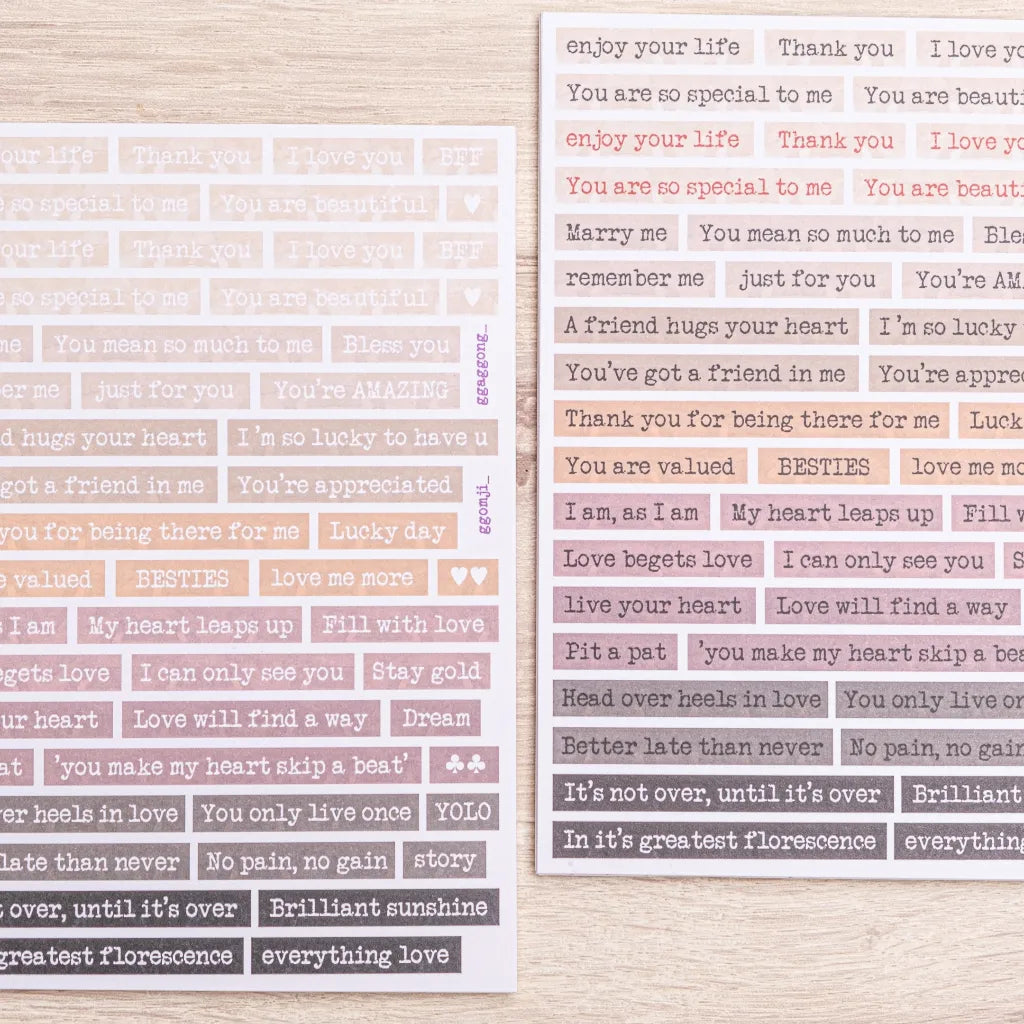 our life Thank you I love you BFF
so special to me You are beautiful ♥
our life Thank you I love you BFF
so special to me You are beautiful ♥
me You mean so much to me Bless you
er me just for you You're AMAZING
ggaggong_
hugs your heart I'm so lucky to have u
got a friend in me You're appreciated
ggomji_
you for being there for me Lucky day
valued BESTIES love me more ♥♥
I am My heart leaps up Fill with love
egets love I can only see you Stay gold
ur heart Love will find a way Dream
at 'you make my heart skip a beat' ♣♣
er heels in love You only live once YOLO
late than never No pain, no gain story
over, until it's over Brilliant sunshine
greatest florescence everything love
enjoy your life Thank you I love yo
You are so special to me You are beauti
enjoy your life Thank you I love yo
You are so special to me You are beauti
Marry me You mean so much to me Bles
remember me just for you You're AMA
A friend hugs your heart I'm so lucky
You've got a friend in me You're apprec
Thank you for being there for me Luck
You are valued BESTIES love me mo
I am, as I am My heart leaps up Fill w
Love begets love I can only see you S
live your heart Love will find a way
Pit a pat 'you make my heart skip a bea
Head over heels in love You only live on
Better late than never No pain, no gain
It's not over, until it's over Brilliant
In it's greatest florescence everything